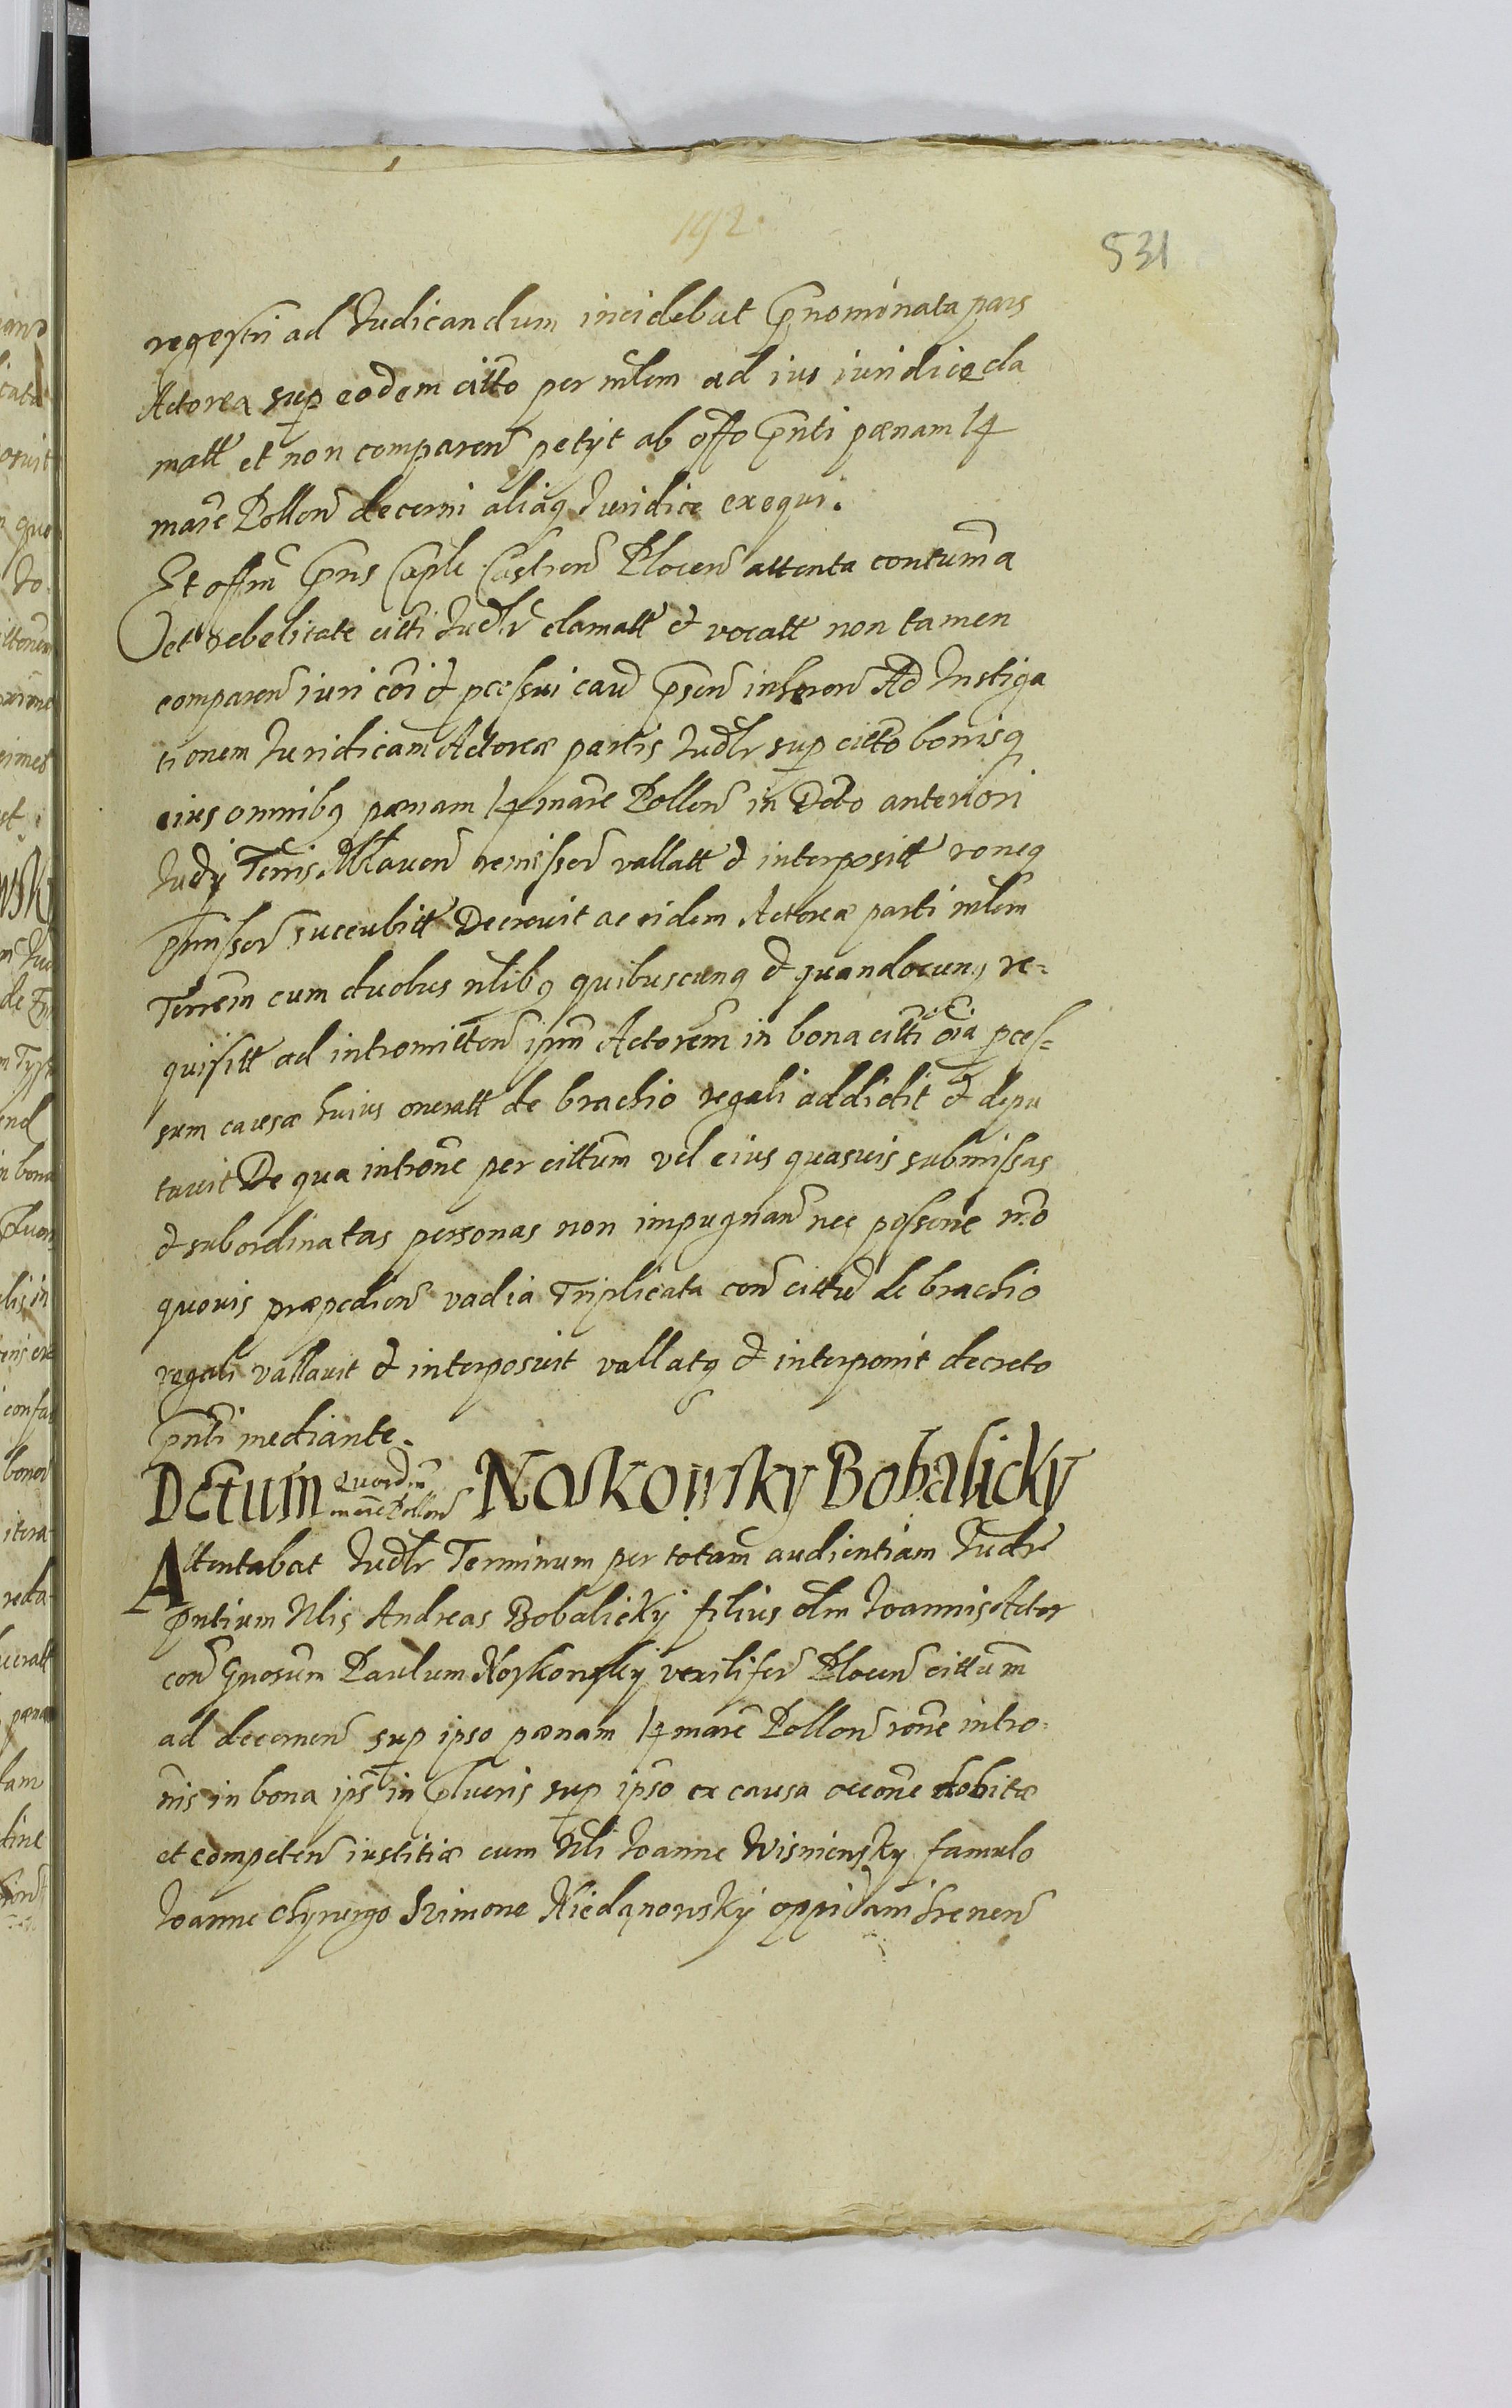 192.
531
regestri ad Judicandum incidebat p̄nominata pars
Actorea sup eodem citto per mlem ad ius iuridice cla
matt et non comparen petyt ab offo p̄nti pœnam 14
marc Pollon decerni aliaq Juridice exequi.
Et offm p̄ns Caple Castren Plocen attenta contuma
et rebelitate citti Judlr clamatt et vocatt non tamen
comparen iuri coi et pcessui caus p̄sen inheren Ad Instiga
tionem Juridicam Actoreæ partis Judlr sup citto bonisq
eius omnibq pœnam 14 marc Pollon in Dcto anteriori
Judy Terris Mlauen remissor vallatt et interpositt roneq
p̄missor succubitt Decrevit ac eidem Actoreæ parti mlem
Terrem cum duobus nlibq quibuscunq et quandocunq re-
quisitt ad intromitten ipm Actorem in bona citti oia pces-
sum causæ huius oneratt de brachio regali addidit et depu
tavit De qua introne per cittum vel eius quasvis submissas
et subordinatas personas non impugnan nec possone mo
quovis præpedien vadia Triplicata con cittu de brachio
regali vallavit et interposuit vallatq et interponit decreto
p̄nti mediante.
Dctum quord marc Pollon Noskowsky Bobalicky
Attentabat Judlr Terminum per totam audientiam Judr
p̄ntium Nlis Andreas Bobalicky filius olm Joannis Actor
con Gnosum Paulum Noskowsky vexilifer Plocen cittum
ad decernen sup ipso pœnam 14 marc Pollon rone intro-
nis in bona ips in sup ipso ex causa occone dobitæ
et competen iustitiæ cum Nli Joanne Wisniensky famulo
Joanne Chyrurgo Szimone Niedanowsky oppidam Srenen